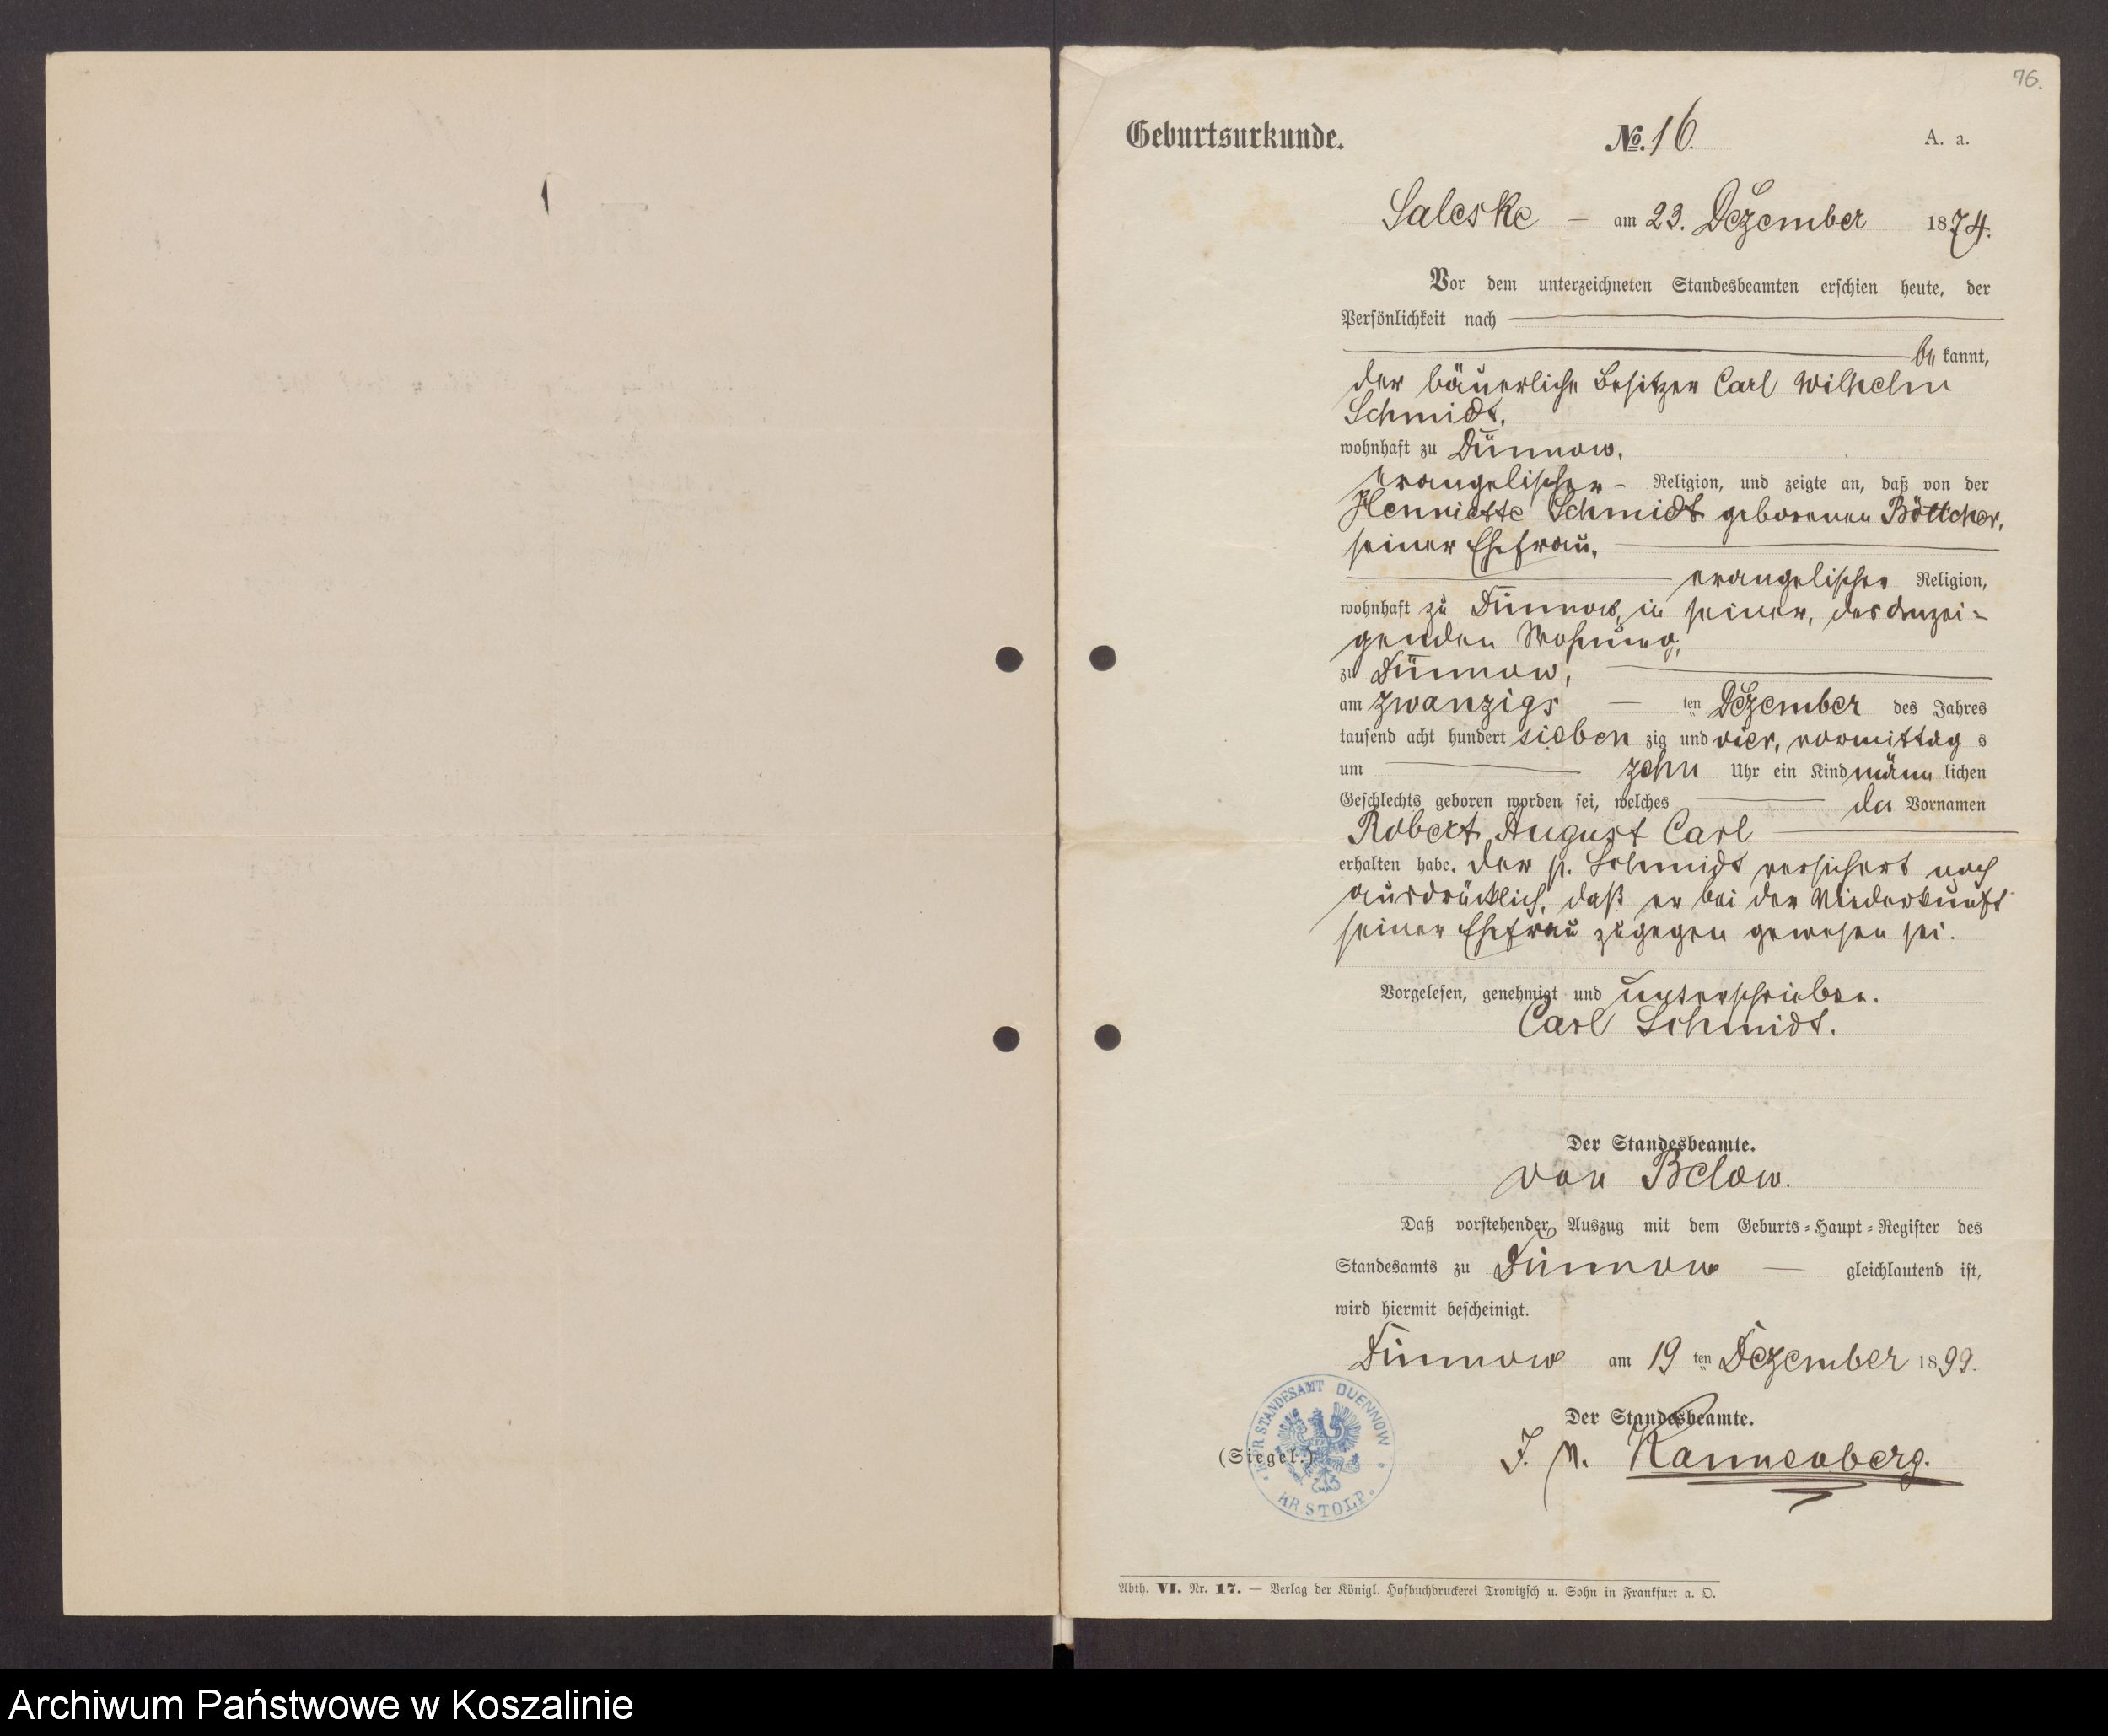 76.
Geburtsurkunde. No. 16. A. a.
Saleske — am 23. Dezember 1874.
Vor dem unterzeichneten Standesbeamten erschien heute, der
Persönlichkeit nach
bekannt,
der bäuerliche Besitzer Carl Wilhelm
Schmidt,
wohnhaft zu Dünnow,
evangelischer - Religion, und zeigte an, daß von der
Henriette Schmidt geborenen Böttcher,
seiner Ehefrau,
evangelischer Religion,
wohnhaft zu Dünnow, in seiner, des Anzei-
genden Wohnung,
zu Dünnow,
am zwanzigs — ten Dezember des Jahres
tausend acht hundert sieben zig und vier, vormittag s
um zehn Uhr ein Kind männ lichen
Geschlechts geboren worden sei, welches die Vornamen
Robert August Carl
erhalten habe. Der p. Schmidt versichert noch
ausdrücklich, daß er bei der Niederkunft
seiner Ehefrau zugegen gewesen sei.
Vorgelesen, genehmigt und unterschrieben.
Carl Schmidt.
Der Standesbeamte.
von Below.
Daß vorstehender Auszug mit dem Geburts-Haupt-Register des
Standesamts zu Dünnow — gleichlautend ist,
wird hiermit bescheinigt.
Dünnow am 19 ten Dezember 1899.
Der Standesbeamte.
(Siegel.) J. V. Kannenberg.
STANDESAMT DUENNOW
KR. STOLP.
Abth. VI. Nr. 17. — Verlag der Königl. Hofbuchdruckerei Trowitzsch u. Sohn in Frankfurt a. O.
Archiwum Państwowe w Koszalinie